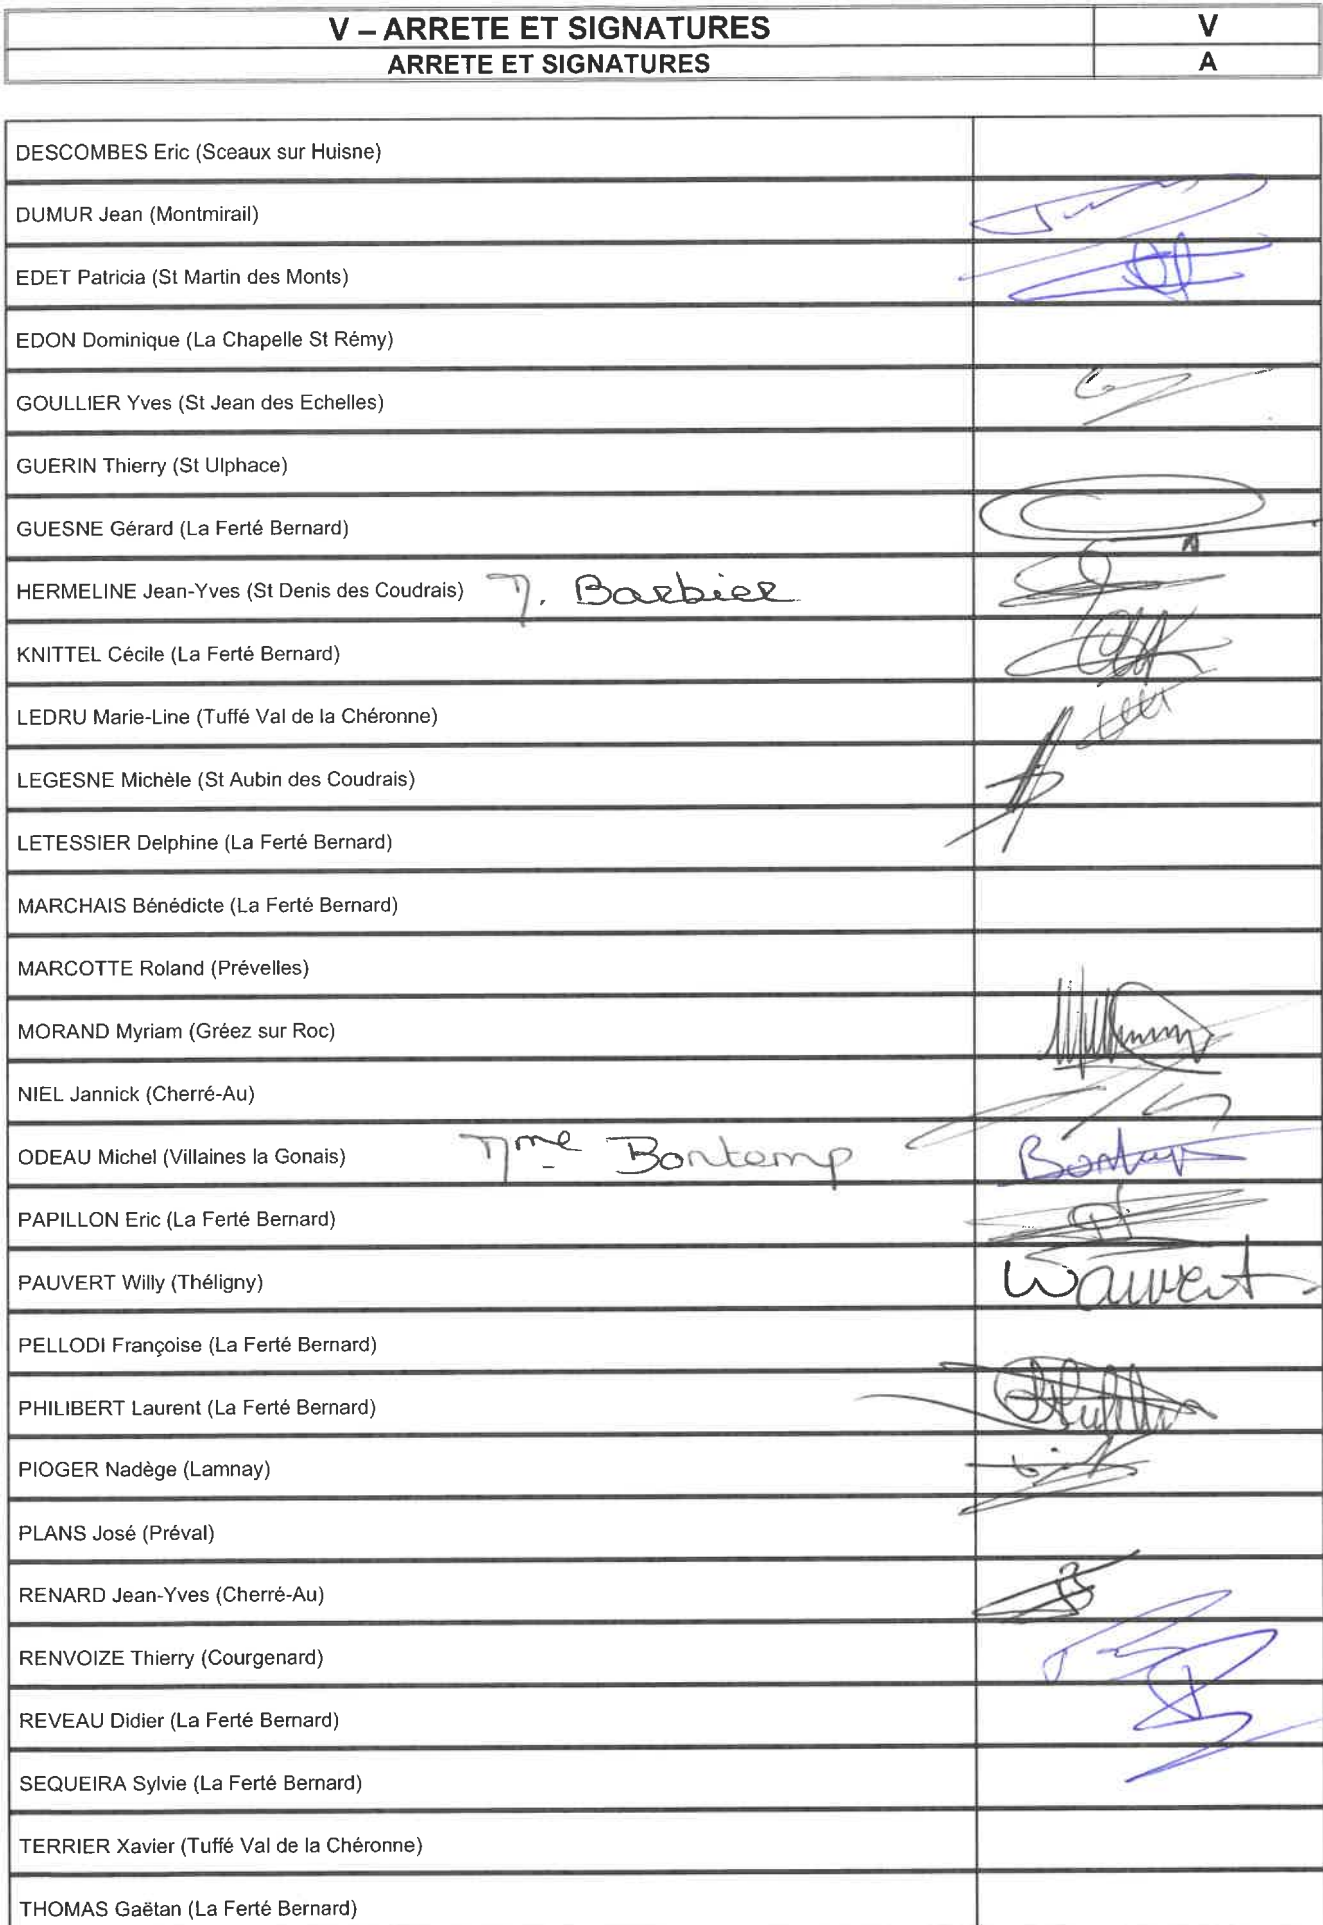 V – ARRETE ET SIGNATURES V
ARRETE ET SIGNATURES A
DESCOMBES Eric (Sceaux sur Huisne)
DUMUR Jean (Montmirail)
EDET Patricia (St Martin des Monts)
EDON Dominique (La Chapelle St Rémy)
GOULLIER Yves (St Jean des Echelles)
GUERIN Thierry (St Ulphace)
GUESNE Gérard (La Ferté Bernard)
HERMELINE Jean-Yves (St Denis des Coudrais) M. Barbier
KNITTEL Cécile (La Ferté Bernard)
LEDRU Marie-Line (Tuffé Val de la Chéronne)
LEGESNE Michèle (St Aubin des Coudrais)
LETESSIER Delphine (La Ferté Bernard)
MARCHAIS Bénédicte (La Ferté Bernard)
MARCOTTE Roland (Prévelles)
MORAND Myriam (Gréez sur Roc)
NIEL Jannick (Cherré-Au)
ODEAU Michel (Villaines la Gonais) Mme Bontemp
PAPILLON Eric (La Ferté Bernard)
PAUVERT Willy (Théligny)
PELLODI Françoise (La Ferté Bernard)
PHILIBERT Laurent (La Ferté Bernard)
PIOGER Nadège (Lamnay)
PLANS José (Préval)
RENARD Jean-Yves (Cherré-Au)
RENVOIZE Thierry (Courgenard)
REVEAU Didier (La Ferté Bernard)
SEQUEIRA Sylvie (La Ferté Bernard)
TERRIER Xavier (Tuffé Val de la Chéronne)
THOMAS Gaëtan (La Ferté Bernard)